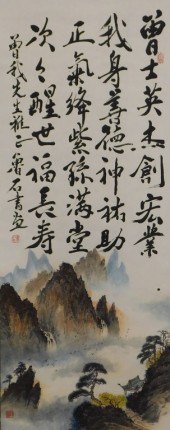 曾士英杰創宏業
我身善德神祐助
正氣絳紫綵滿堂
次々醒世福長壽
曾我先生雅正魯石書畫